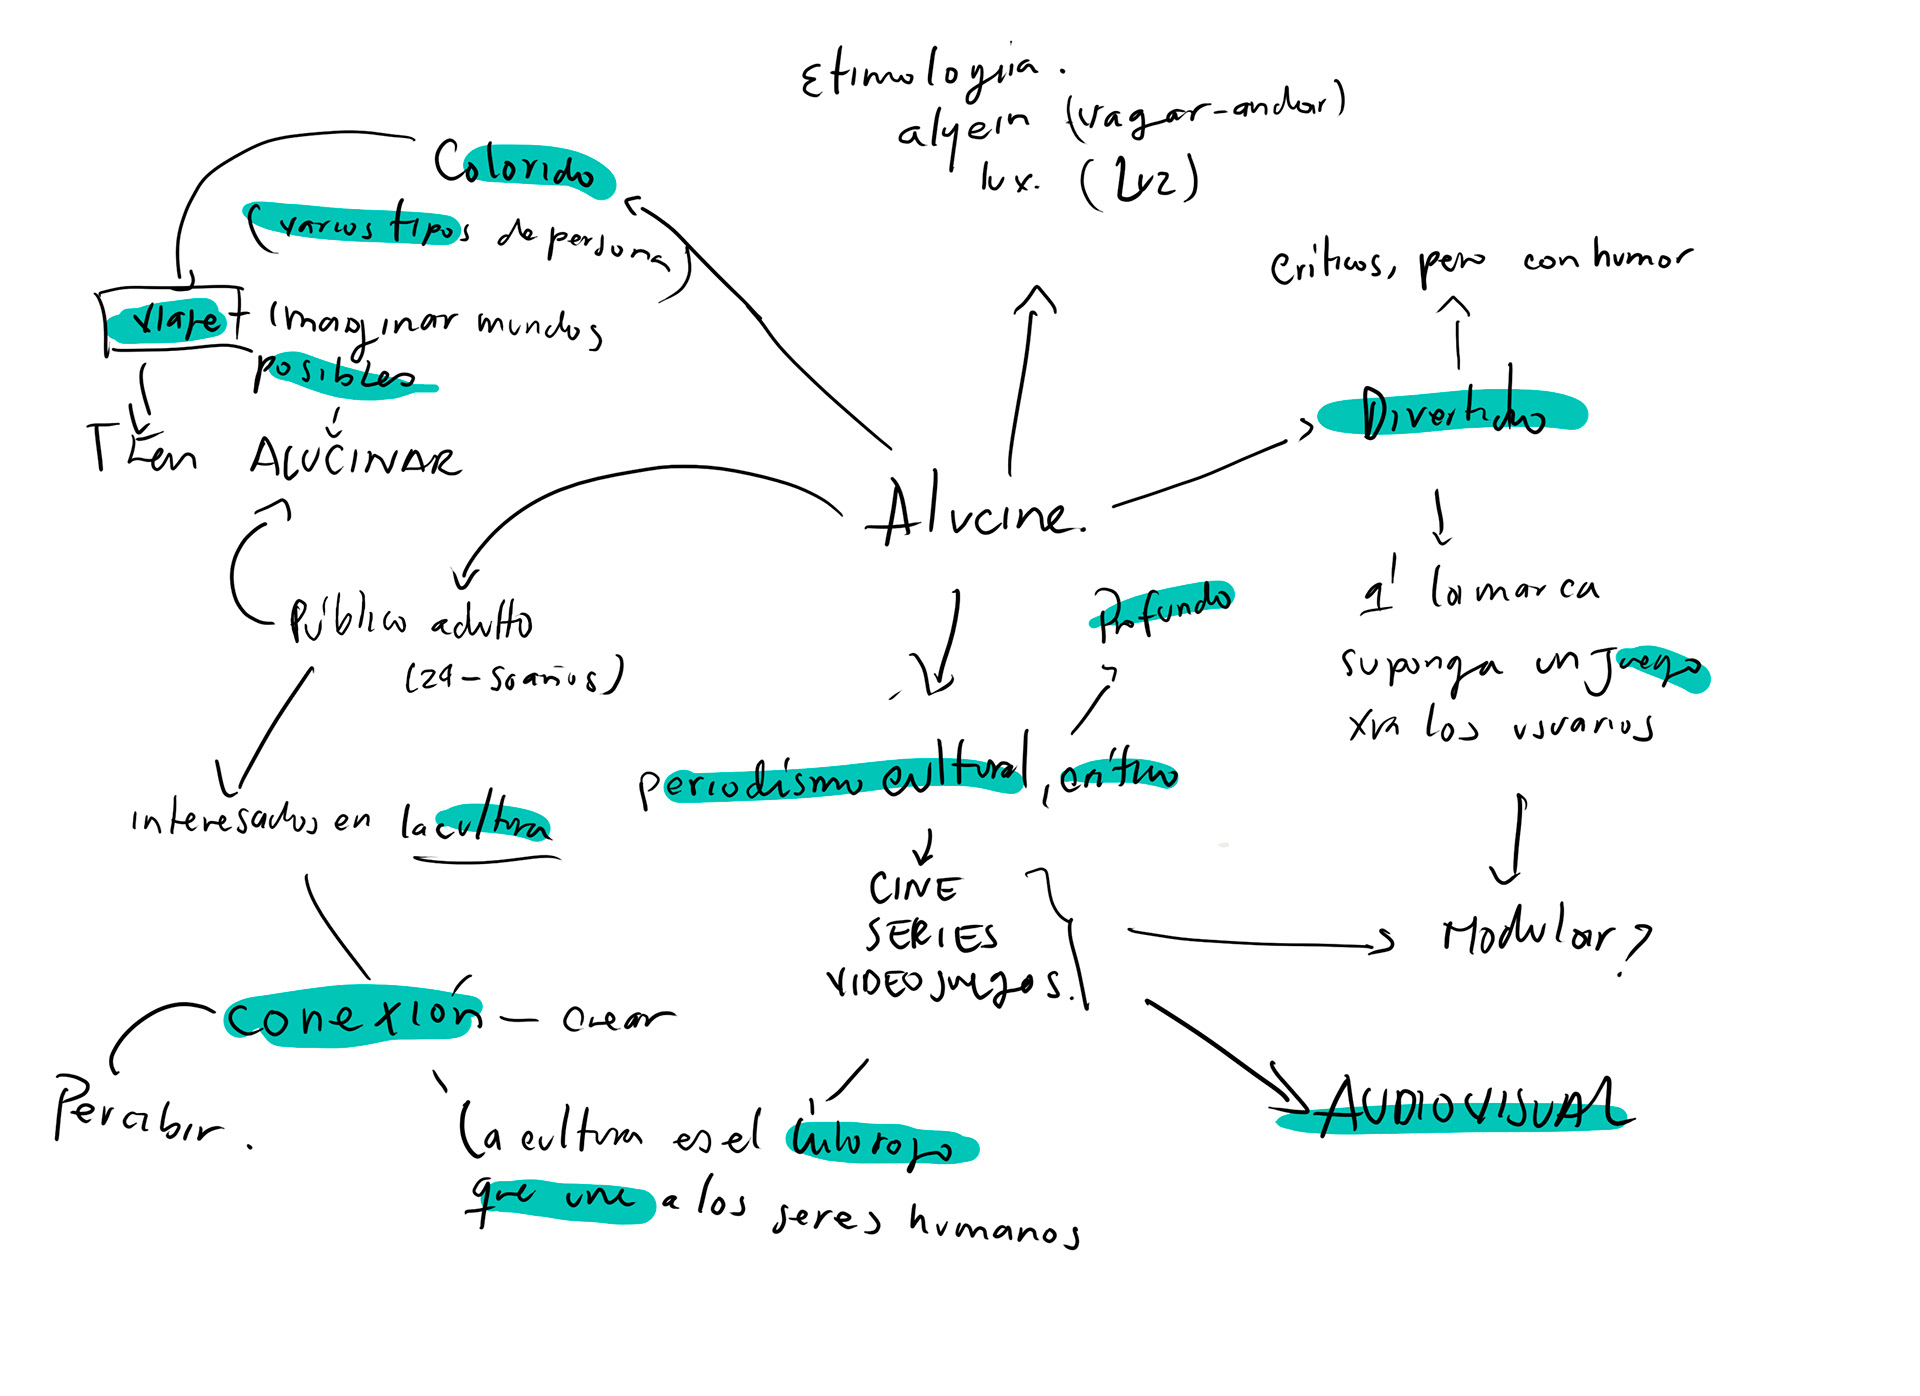 Etimologia.
alyein (vagar-andar)
lux. (Luz)
Colorido
(varios tipos de persona)
viaje
imaginar mundos
posibles
TLen
ALUCINAR
críticos, pero con humor
Divertido
Alucine.
q' la marca
suponga un juego
xra los usuarios
Público adulto
(24-50 años)
Profundo
periodismo cultural, crítico
interesados en la cultura
CINE
SERIES
VIDEOJUEGOS.
Modular?
conexión - crear
Percibir.
AUDIOVISUAL
La cultura es el
que une a los seres humanos